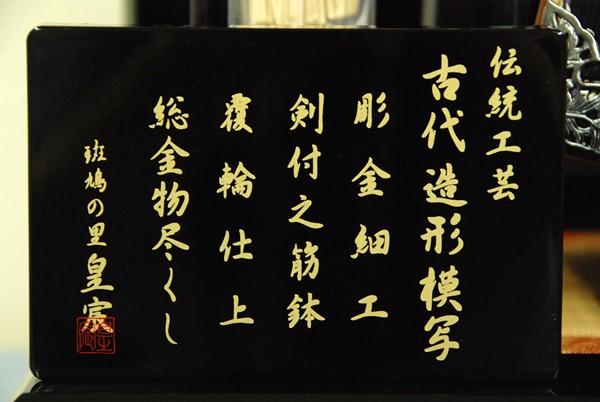 伝統工芸
古代造形模写
彫金細工
剣付之筋鉢
覆輪仕上
総金物尽くし
斑鳩の里皇宗